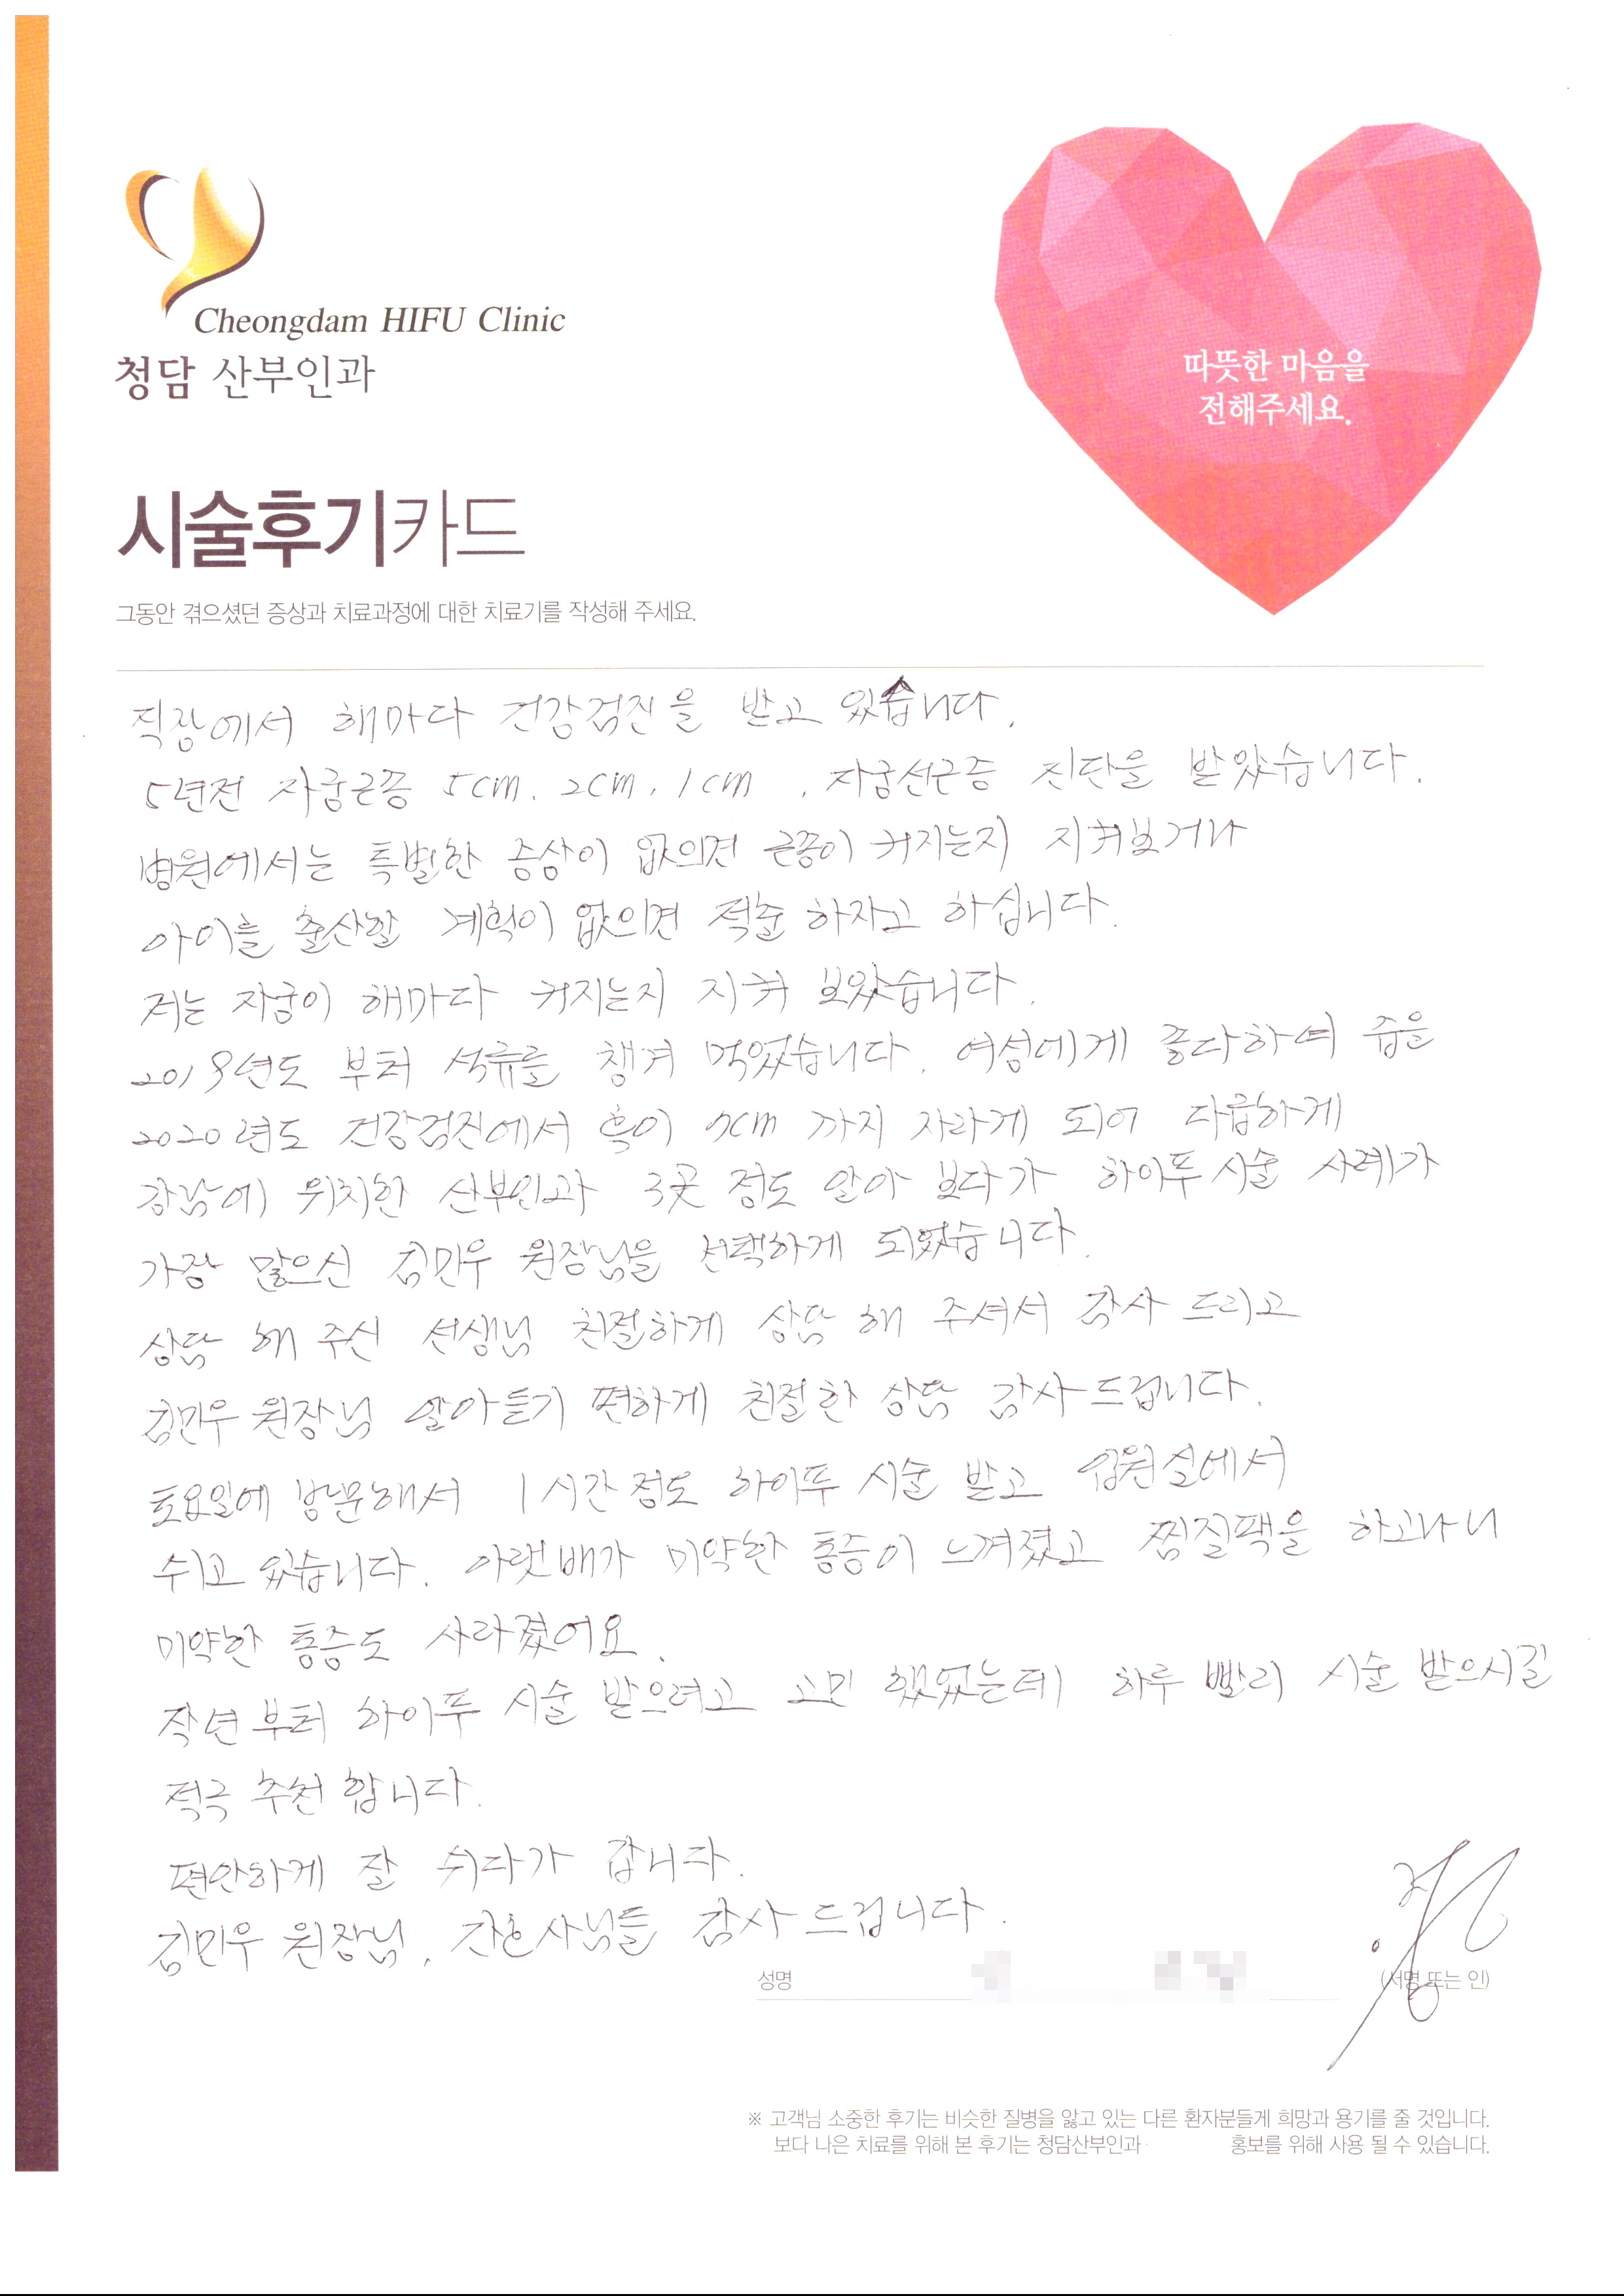 Cheongdam HIFU Clinic
청담 산부인과
따뜻한 마음을
전해주세요.
시술후기카드
그동안 겪으셨던 증상과 치료과정에 대한 치료기를 작성해 주세요.
직장에서 해마다 건강검진을 받고 있습니다.
5년전 자궁근종 5cm. 2cm. 1cm , 자궁선근증 진단을 받았습니다.
병원에서는 특별한 증상이 없으면 근종이 커지는지 지켜보거나
아이를 출산할 계획이 없으면 적출 하자고 하십니다.
저는 자궁이 해마다 커지는지 지켜 보았습니다.
2019년도 부터 석류를 챙겨 먹었습니다. 여성에게 좋다하여 즙을
2020년도 건강검진에서 혹이 7cm 까지 자라게 되어 다급하게
강남에 위치한 산부인과 3곳 정도 알아 보다가 하이푸 시술 사례가
가장 많으신 김민우 원장님을 선택하게 되었습니다.
상담 해 주신 선생님 친절하게 상담 해 주셔서 감사 드리고
김민우 원장님 알아듣기 편하게 친절한 상담 감사드립니다.
토요일에 방문해서 1시간 정도 하이푸 시술 받고 입원실에서
쉬고 있습니다. 아랫배가 미약한 통증이 느껴졌고 찜질팩을 하고나니
미약한 통증도 사라졌어요.
작년부터 하이푸 시술 받으려고 고민 했었는데 하루 빨리 시술 받으시길
적극 추천 합니다.
편안하게 잘 쉬다가 갑니다.
김민우 원장님, 간호사님들 감사 드립니다.
성명
(서명 또는 인)
※ 고객님 소중한 후기는 비슷한 질병을 앓고 있는 다른 환자분들게 희망과 용기를 줄 것입니다.
보다 나은 치료를 위해 본 후기는 청담산부인과 홍보를 위해 사용 될 수 있습니다.